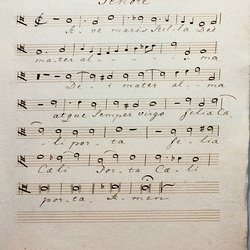 Tenore
Ave maris stella Dei
mater al - - - - ma
Dei mater al - ma
atque semper virgo felix
- li porta felix
Cæli Porta Cæli
porta. Amen